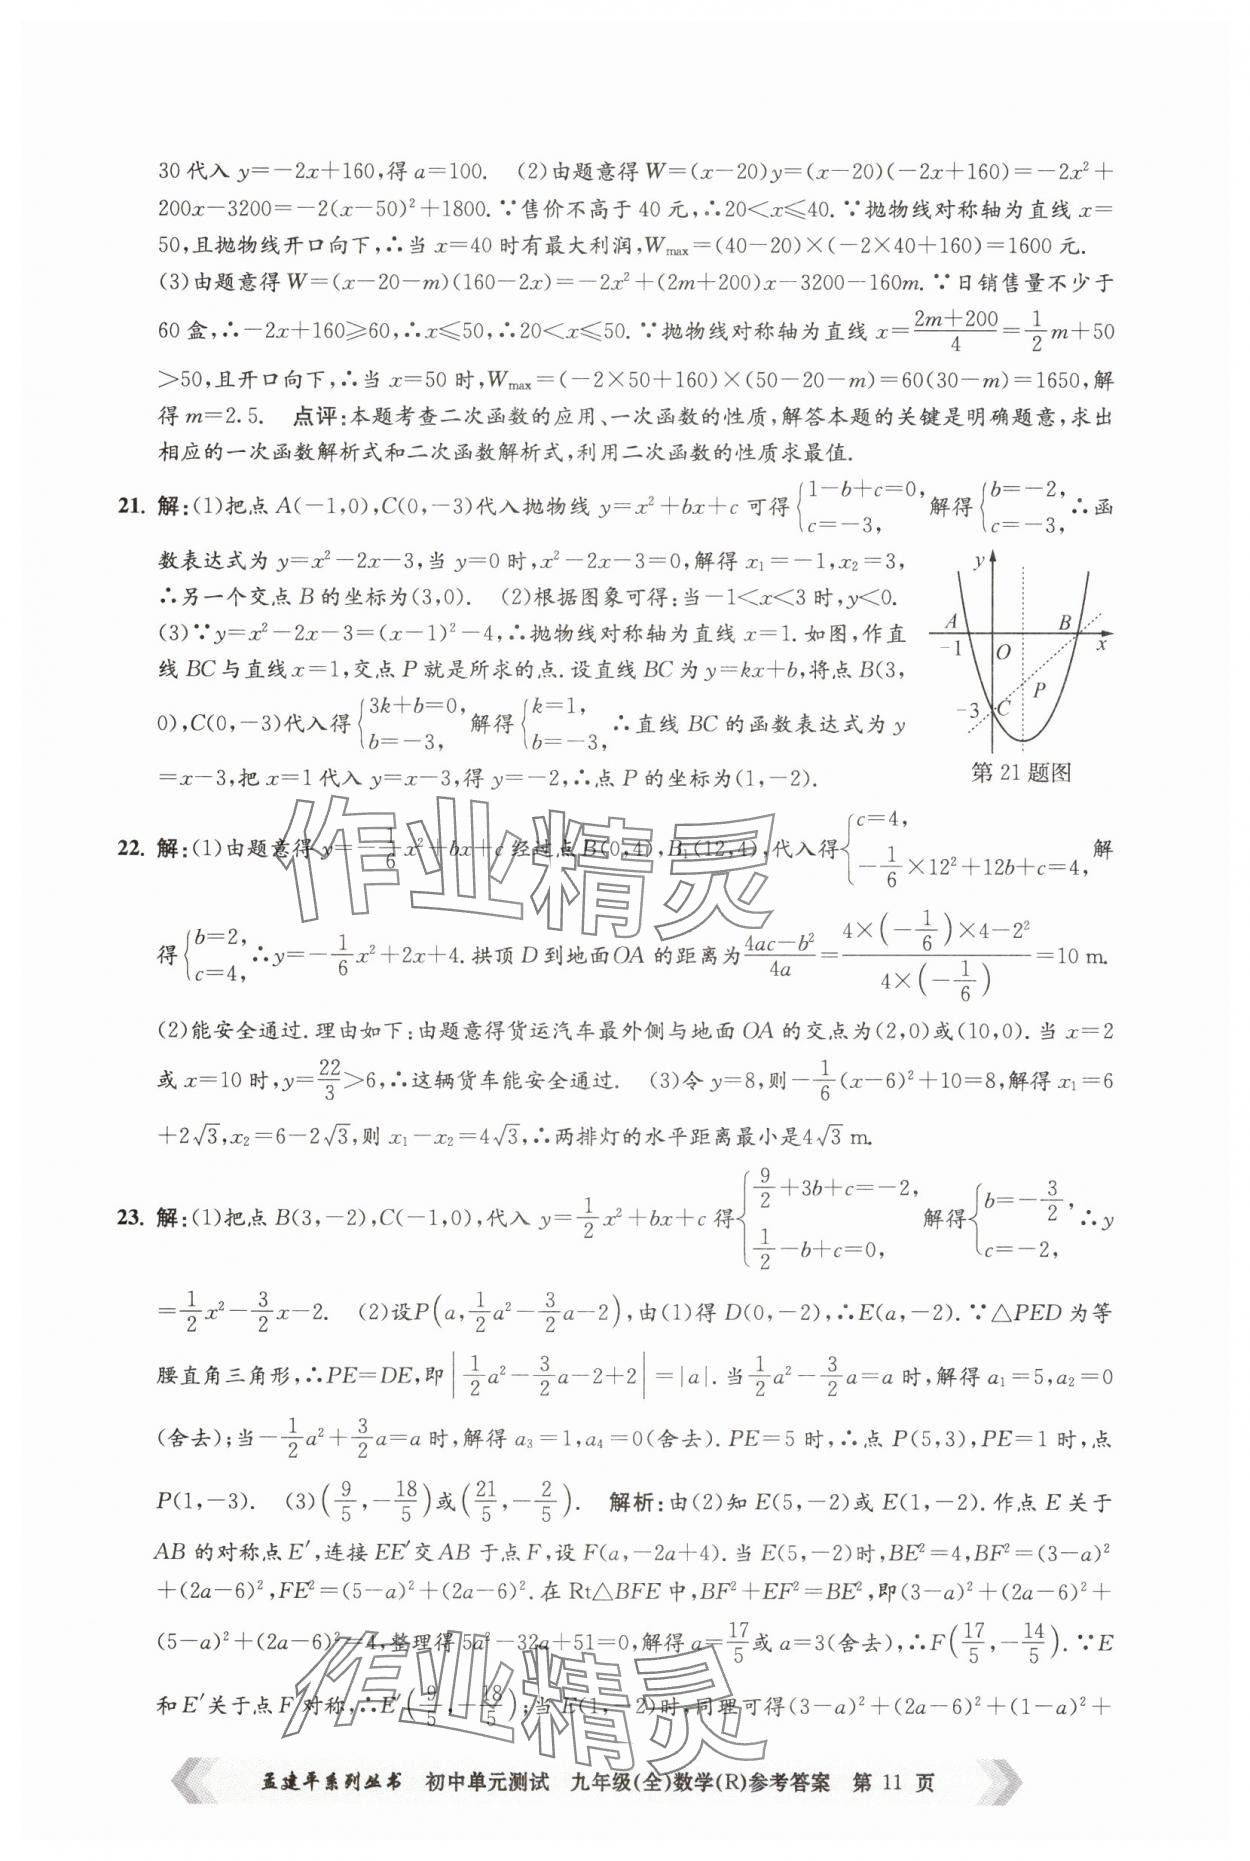 30代入 y=-2x+160,得 a=100. (2)由题意得 W=(x-20)y=(x-20)(-2x+160)=-2x²+
200x-3200=-2(x-50)²+1800.∵售价不高于 40 元,∴20<x≤40.∵抛物线对称轴为直线 x=
50,且抛物线开口向下,∴当 x=40 时有最大利润,Wmax=(40-20)×(-2×40+160)=1600 元.
(3)由题意得 W=(x-20-m)(160-2x)=-2x²+(2m+200)x-3200-160m.∵日销售量不少于
60 盒,∴-2x+160≥60,∴x≤50,∴20<x≤50.∵抛物线对称轴为直线 x=(2m+200)/4=1/2m+50
>50,且开口向下,∴当 x=50 时,Wmax=(-2×50+160)×(50-20-m)=60(30-m)=1650,解
得 m=2.5. 点评:本题考查二次函数的应用、一次函数的性质,解答本题的关键是明确题意,求出
相应的一次函数解析式和二次函数解析式,利用二次函数的性质求最值.
21. 解:(1)把点 A(-1,0),C(0,-3)代入抛物线 y=x²+bx+c 可得{1-b+c=0, c=-3, 解得{b=-2, c=-3, ∴函
数表达式为 y=x²-2x-3,当 y=0 时,x²-2x-3=0,解得 x₁=-1,x₂=3,
∴另一个交点 B 的坐标为(3,0). (2)根据图象可得:当-1<x<3 时,y<0.
(3)∵y=x²-2x-3=(x-1)²-4,∴抛物线对称轴为直线 x=1.如图,作直
线 BC 与直线 x=1,交点 P 就是所求的点.设直线 BC 为 y=kx+b,将点 B(3,
0),C(0,-3)代入得{3k+b=0, b=-3, 解得{k=1, b=-3, ∴直线 BC 的函数表达式为 y
=x-3,把 x=1 代入 y=x-3,得 y=-2,∴点 P 的坐标为(1,-2).
y
A
B
-1
O
x
P
-3
C
第 21 题图
22. 解:(1)由题意得 y=-1/6x²+bx+c 经过点 B(0,4),B₁(12,4),代入得{c=4, -1/6×12²+12b+c=4, 解
得{b=2, c=4, ∴y=-1/6x²+2x+4.拱顶 D 到地面OA 的距离为(4ac-b²)/4a=(4×(-1/6)×4-2²)/(4×(-1/6))=10 m.
(2)能安全通过.理由如下:由题意得货运汽车最外侧与地面 OA 的交点为(2,0)或(10,0).当 x=2
或 x=10 时,y=22/3>6,∴这辆货车能安全通过. (3)令 y=8,则-1/6(x-6)²+10=8,解得 x₁=6
+2√3,x₂=6-2√3,则 x₁-x₂=4√3,∴两排灯的水平距离最小是4√3 m.
23. 解:(1)把点 B(3,-2),C(-1,0),代入 y=1/2x²+bx+c 得{9/2+3b+c=-2, 1/2-b+c=0, 解得{b=-3/2, c=-2, ∴y
=1/2x²-3/2x-2. (2)设P(a,1/2a²-3/2a-2),由(1)得 D(0,-2),∴E(a,-2).∵△PED 为等
腰直角三角形,∴PE=DE,即|1/2a²-3/2a-2+2|=|a|.当1/2a²-3/2a=a 时,解得 a₁=5,a₂=0
(舍去);当-1/2a²+3/2a=a 时,解得 a₃=1,a₄=0(舍去).PE=5 时,∴点 P(5,3),PE=1 时,点
P(1,-3). (3)(9/5,-18/5)或(21/5,-2/5). 解析:由(2)知 E(5,-2)或 E(1,-2).作点 E 关于
AB 的对称点 E′,连接 EE′交 AB 于点 F,设 F(a,-2a+4).当 E(5,-2)时,BE²=4,BF²=(3-a)²
+(2a-6)²,FE²=(5-a)²+(2a-6)².在 Rt△BFE 中,BF²+EF²=BE²,即(3-a)²+(2a-6)²+
(5-a)²+(2a-6)²=4,整理得 5a²-32a+51=0,解得 a=17/5或 a=3(舍去),∴F(17/5,-14/5).∵E
和 E′关于点 F 对称,∴E′(9/5,-18/5);当 E(1,-2)时,同理可得(3-a)²+(2a-6)²+(1-a)²+
作业精灵
作业精灵
孟建平系列丛书 初中单元测试 九年级(全)数学(R)参考答案 第 11 页